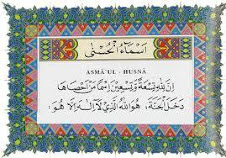 اَسْمَاءُ الْحُسْنٰى
ASMÂ'UL - HUSNÂ
اِنَّ لِلّٰهِ تِسْعَةً وَتِسْعِينَ اِسْمًا مَنْ اَحْصَاهَا
دَخَلَ الْجَنَّةَ، هُوَ اللّٰهُ الَّذِي لَا اِلٰهَ اِلَّا هُوَ